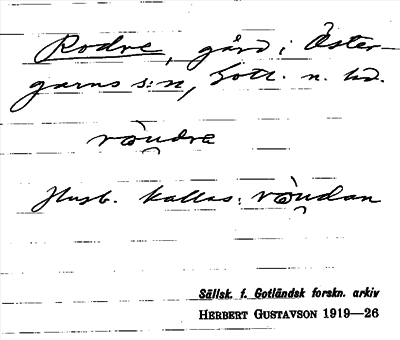 Rodve, gård i Öster-
garns s:n, Gotl. n. hd.
ròu̯dvæ
Husb. kallas: ròu̯dan
Sällsk. f. Gotländsk forskn. arkiv
HERBERT GUSTAVSON 1919—26